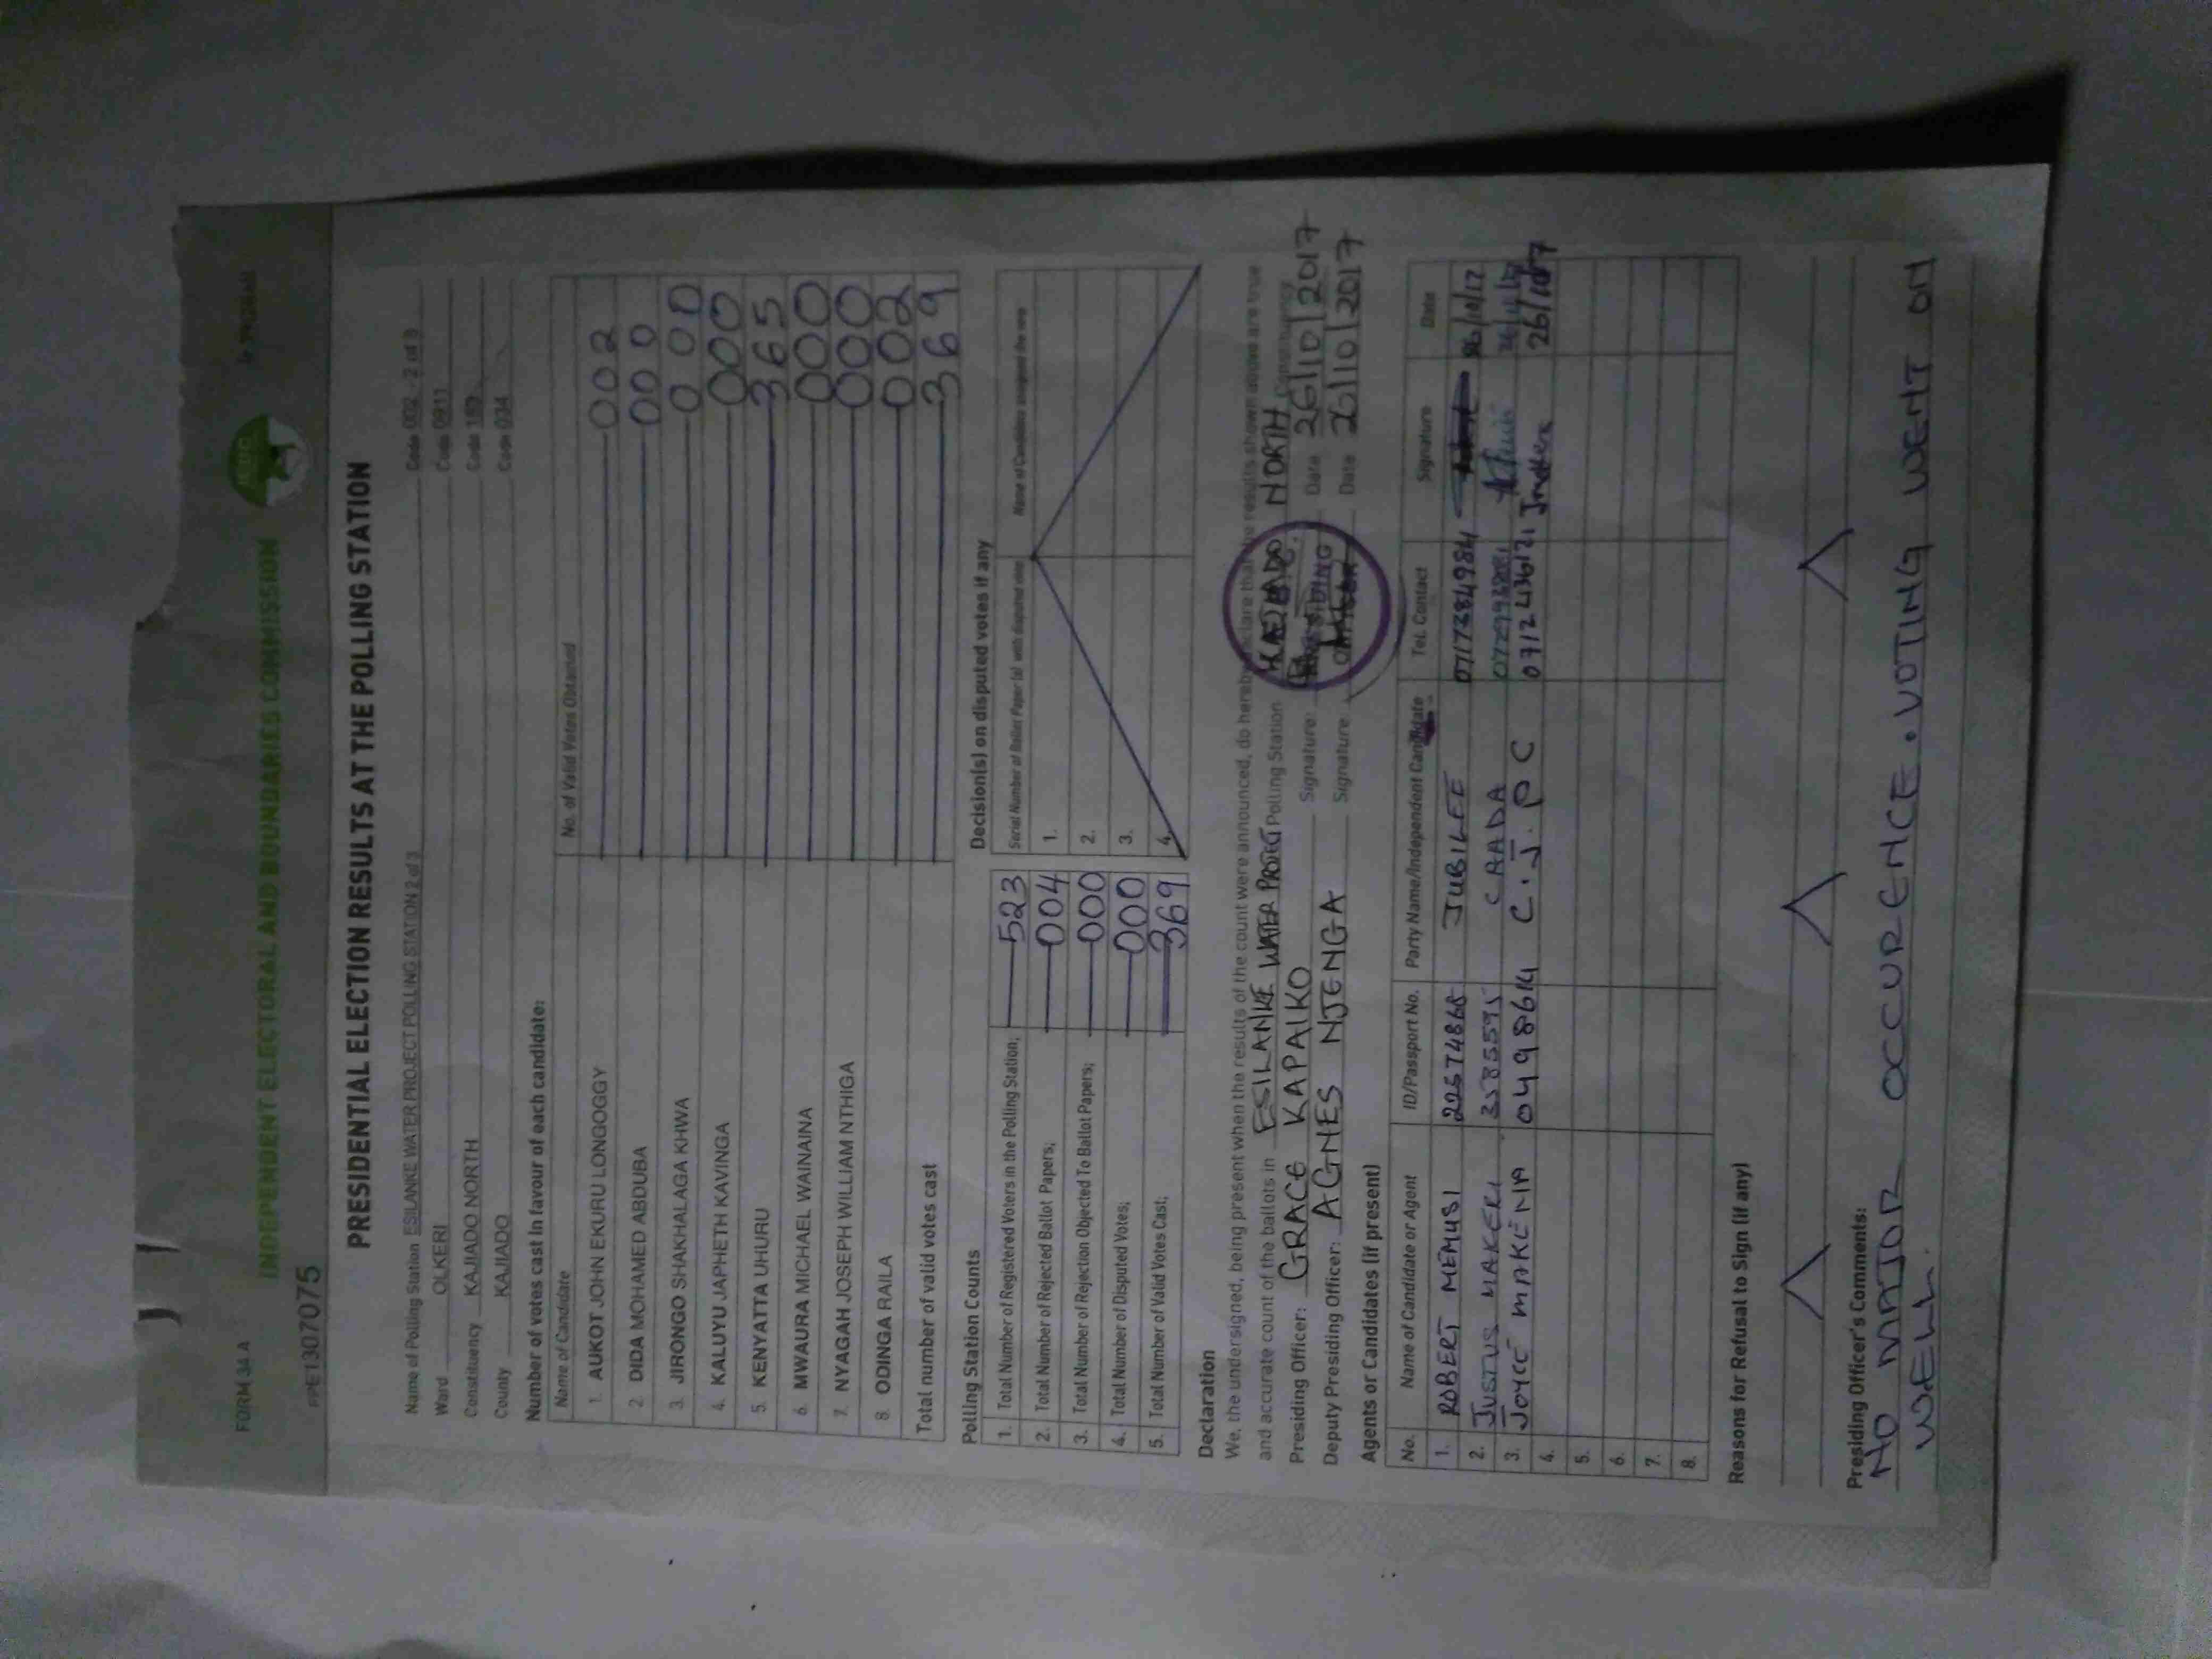 FORM 34 A
INDEPENDENT ELECTORAL AND BOUNDARIES COMMISSION
IEBC
PRESIDENTIAL ELECTION RESULTS AT THE POLLING STATION
Name of Polling Station ESILANKE WATER PROJECT POLLING STATION 2 of 3 Code 002 - 2 of 3
Ward OLKERI Code 0911
Constituency KAJIADO NORTH Code 183
County KAJIADO Code 034
Number of votes cast in favour of each candidate:
Name of Candidate No. of Valid Votes Obtained
1. AUKOT JOHN EKURU LONGOGGY 002
2. DIDA MOHAMED ABDUBA 000
3. JIRONGO SHAKHALAGA KHWA 000
4. KALUYU JAPHETH KAVINGA 000
5. KENYATTA UHURU 365
6. MWAURA MICHAEL WAINAINA 000
7. NYAGAH JOSEPH WILLIAM NTHIGA 000
8. ODINGA RAILA 002
Total number of valid votes cast 369
Polling Station Counts
1. Total Number of Registered Voters in the Polling Station; 523
2. Total Number of Rejected Ballot Papers; 004
3. Total Number of Rejection Objected To Ballot Papers; 000
4. Total Number of Disputed Votes; 000
5. Total Number of Valid Votes Cast; 369
Decision(s) on disputed votes if any
Serial Number of Ballot Paper (s) with disputed vote Name of Candidate awarded the vote
1.
2.
3.
4.
Declaration
We, the undersigned, being present when the results of the count were announced, do hereby declare that the results shown above are true
and accurate count of the ballots in ESILANKE WATER PROJECT Polling Station KAJIADO NORTH Constituency
Presiding Officer: GRACE KAPAIKO Signature: Date 26/10/2017
Deputy Presiding Officer: AGNES NJENGA Signature: Date 26/10/2017
PRESIDING
Agents or Candidates (if present)
No. Name of Candidate or Agent ID/Passport No. Party Name/Independent Candidate Tel. Contact Signature Date
1. ROBERT MEMUSI JUBILEE 0717384984 26/10/17
2. JUSTUS MAKERI CAADA
3. JOYCE MAKENA C.J.P.C 26/10/17
4.
5.
6.
7.
8.
Reasons for Refusal to Sign (if any)
Presiding Officer's Comments:
NO MAJOR OCCURENCE. VOTING WENT ON
WELL.